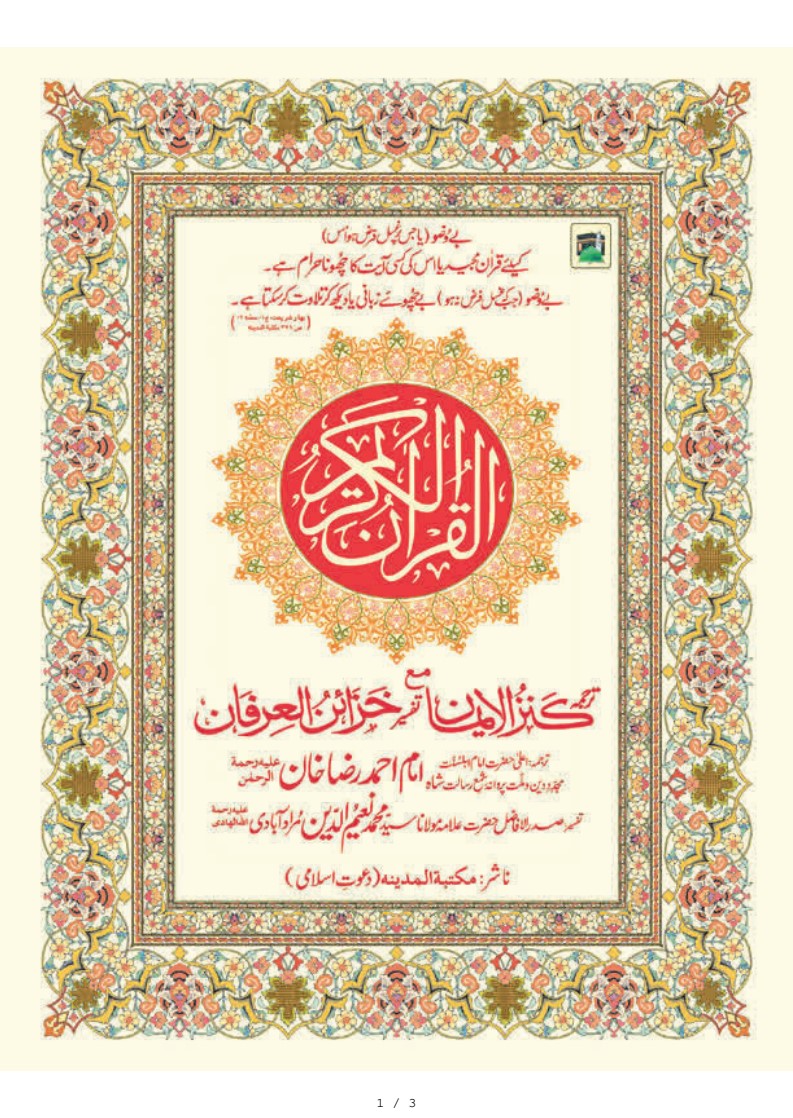 بے وُضو (یا جس پر غسل فرض ہو اُس)
کیلئے قراٰن مجید یا اس کی کسی آیت کا چُھونا حرام ہے۔
بے وُضو (جبکہ غسل فرض نہ ہو) بے چُھوئے زبانی یا دیکھ کر تلاوت کرسکتا ہے۔
(بہارِ شریعت، ج۱، حصّہ ۲،
ص: ۳۲۶ مکتبۃ المدینہ)
القرآن الکریم
ترجمہ کنزُالایمان مع تفسیر خَزَائنُ العِرفَان
ترجمہ: اعلیٰ حضرت امام اہلسنّت
مجدّدِ دین و ملّت پروانۂ شمعِ رسالت شاہ امام احمد رضا خان علیہ رحمۃ الرحمٰن
تفسیر: صدرالافاضل حضرت علامہ مولانا سیّد محمد نعیمُ الدّین مُراد آبادی علیہ رحمۃ اللہ الھادی
ناشر: مکتبۃ المدینہ (دعوتِ اسلامی)
1 / 3